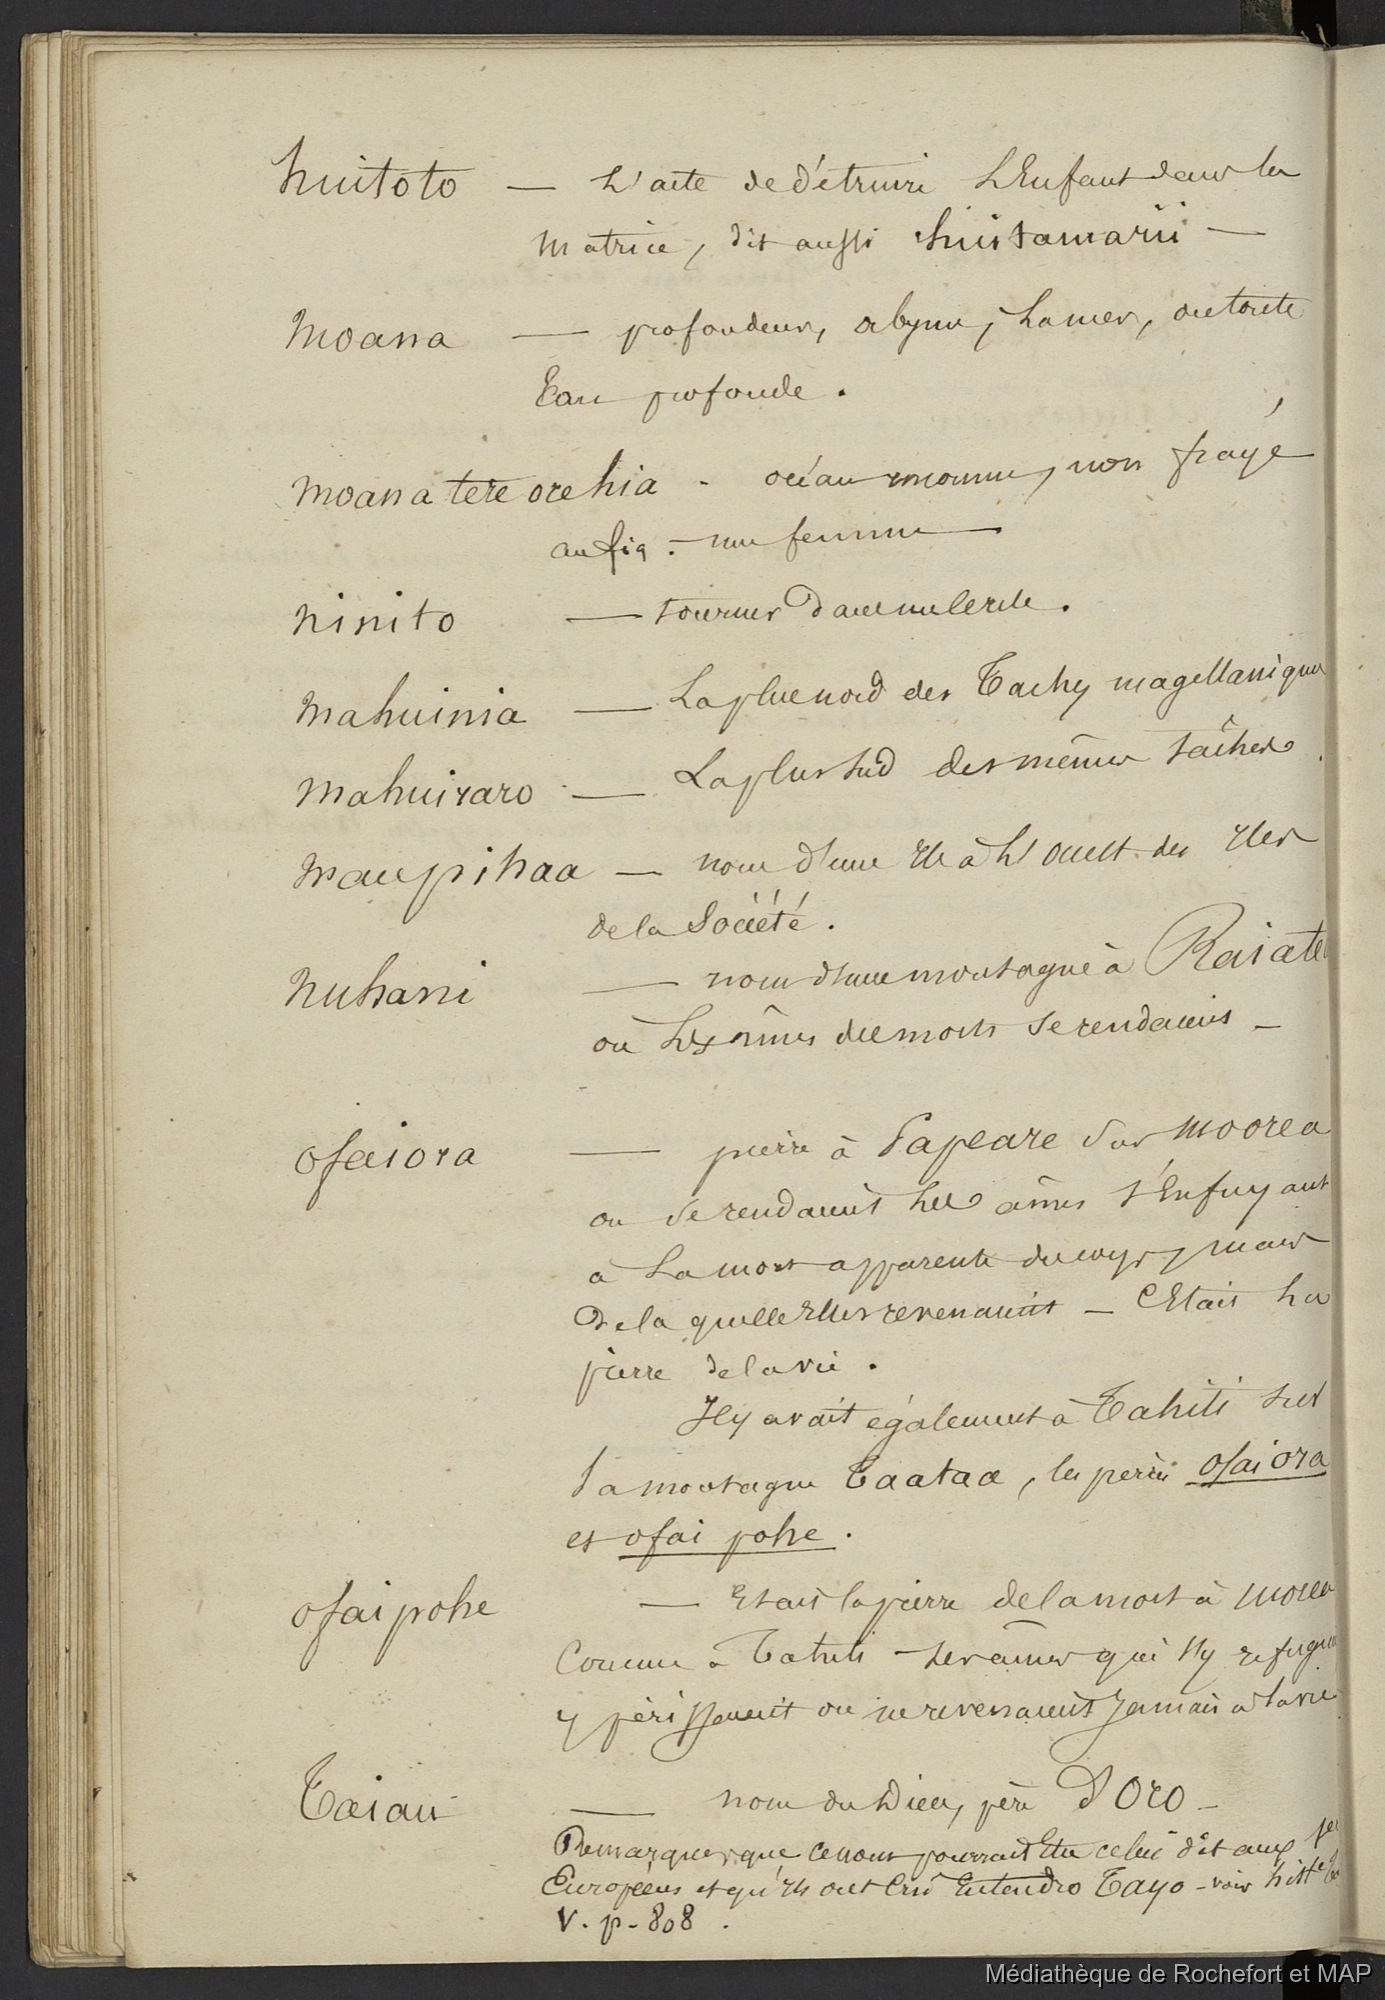 huitoto — L'acte de détruire L'Enfant dans la
matrice, dit aussi huitamarii —
moana — profondeur, abyme, La mer, ou toute
Eau profonde.
moana tere orehia - océan inconnu, non frayé
au fig. - une femme —
ninito — tourner dans un cercle.
mahuinia — La plus nord des Taches magellaniques
mahuiraro — La plus sud des mêmes taches
maupihaa — nom d'une Ile à L'ouest des Iles
de la Société.
nuhani — nom d'une montagne à Raiatea
où Les âmes des morts se rendaient —
ofaiora — pierre à Papeare sur Moorea
ou se rendaient Les âmes s'Enfuyant
a La mort apparente du corps, mais
de la quelle Elles revenaient — C'Etait La
pierre de la vie.
Il y avait également à Tahiti sur
la montagne Taataa, les pierres ofai ora
et ofai pohe.
ofai pohe — Etait la pierre de la mort à moorea
Comme à Tahiti - les âmes qui s'y
y périssaient ou ne revenaient Jamais à la vie.
Taiau — nom du Dieu, père D'Oro —
Remarquer que ce nom pourrait Etre celui dit aux
Européens et qu'ils ont Cru Entendre Tayo - voir
V. p. 808.